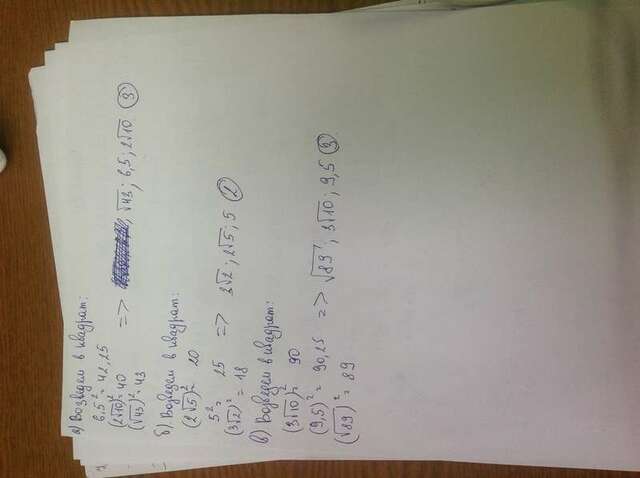 а) Возведем в квадрат:
6,5² = 42,25
(2√10)² = 40
(√43)² = 43
=> √43; 6,5; 2√10 (3)
б) Возведем в квадрат:
(2√5)² = 20
5² = 25
(3√2)² = 18
=> 3√2; 2√5; 5 (2)
в) Возведем в квадрат:
(3√10)² = 90
(9,5)² = 90,25
(√89)² = 89
=> √89; 3√10; 9,5 (3)